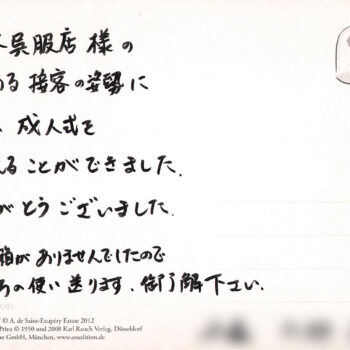 呉服店 様の
る 接客の姿勢に
成人式を
ることができました.
がとうございました.
箱がありませんでしたので
の使い送ります. 御了解下エい.
© A. de Saint-Exupéry Estate 2012
Prinz © 1950 und 2008 Karl Rauch Verlag, Düsseldorf
on GmbH, München, www.arsedition.de